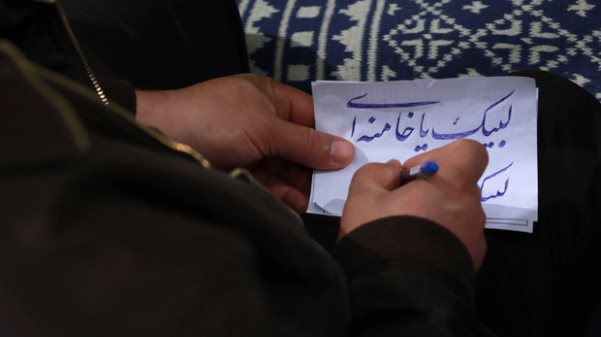 لبیک یا خامنه ای
لبیک